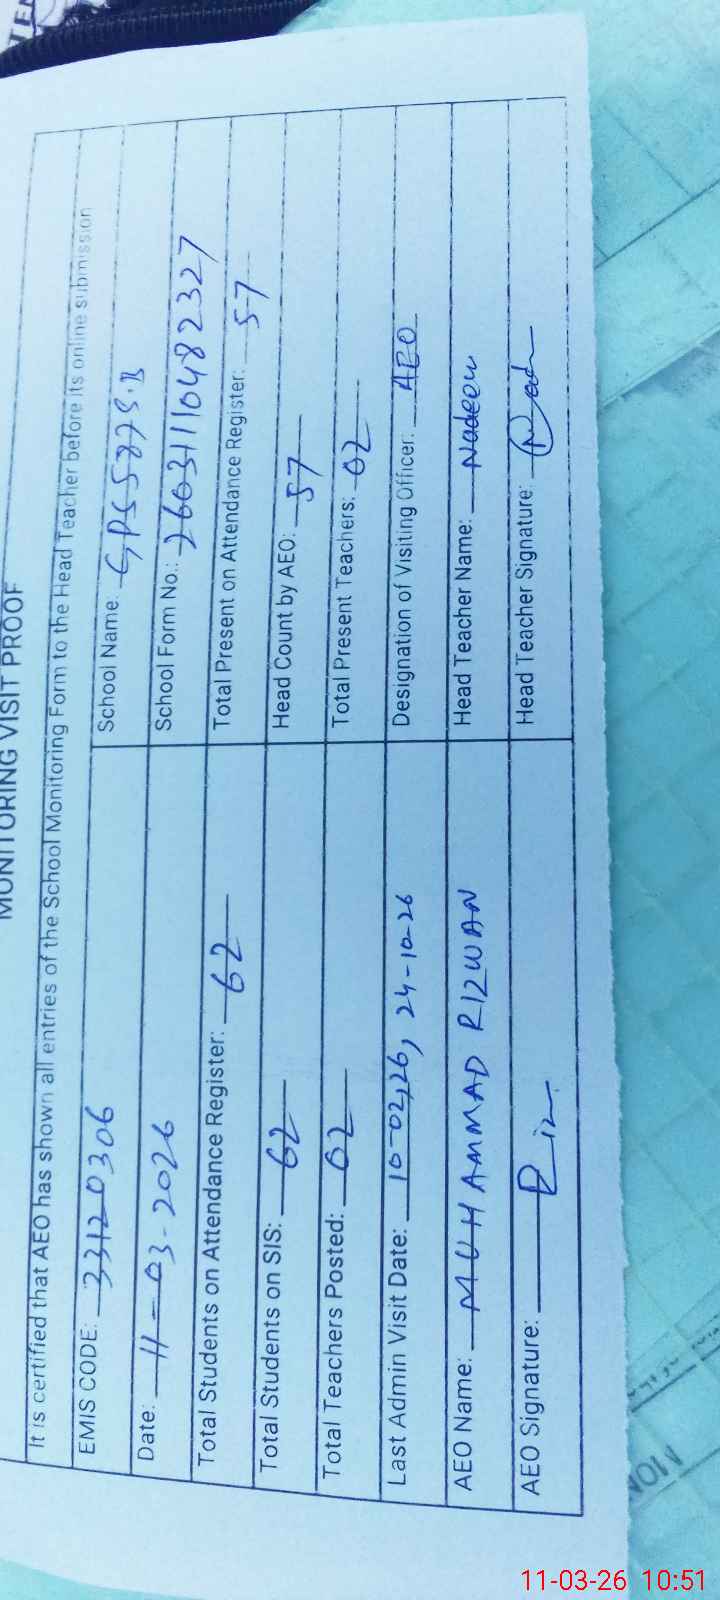 MONITORING VISIT PROOF
It is certified that AEO has shown all entries of the School Monitoring Form to the Head Teacher before its online submission
EMIS CODE: 33120306 School Name: GPS 587 GB
Date: 11-03-2026 School Form No.: 2603111048 2327
Total Students on Attendance Register: 62 Total Present on Attendance Register: 57
Total Students on SIS: 62 Head Count by AEO: 57
Total Teachers Posted: 02 Total Present Teachers: 02
Last Admin Visit Date: 10-02,26, 24-10-26 Designation of Visiting Officer: AEO
AEO Name: MUHAMMAD RIZWAN Head Teacher Name: Nadeem
AEO Signature: Riz Head Teacher Signature:
MON
11-03-26 10:51